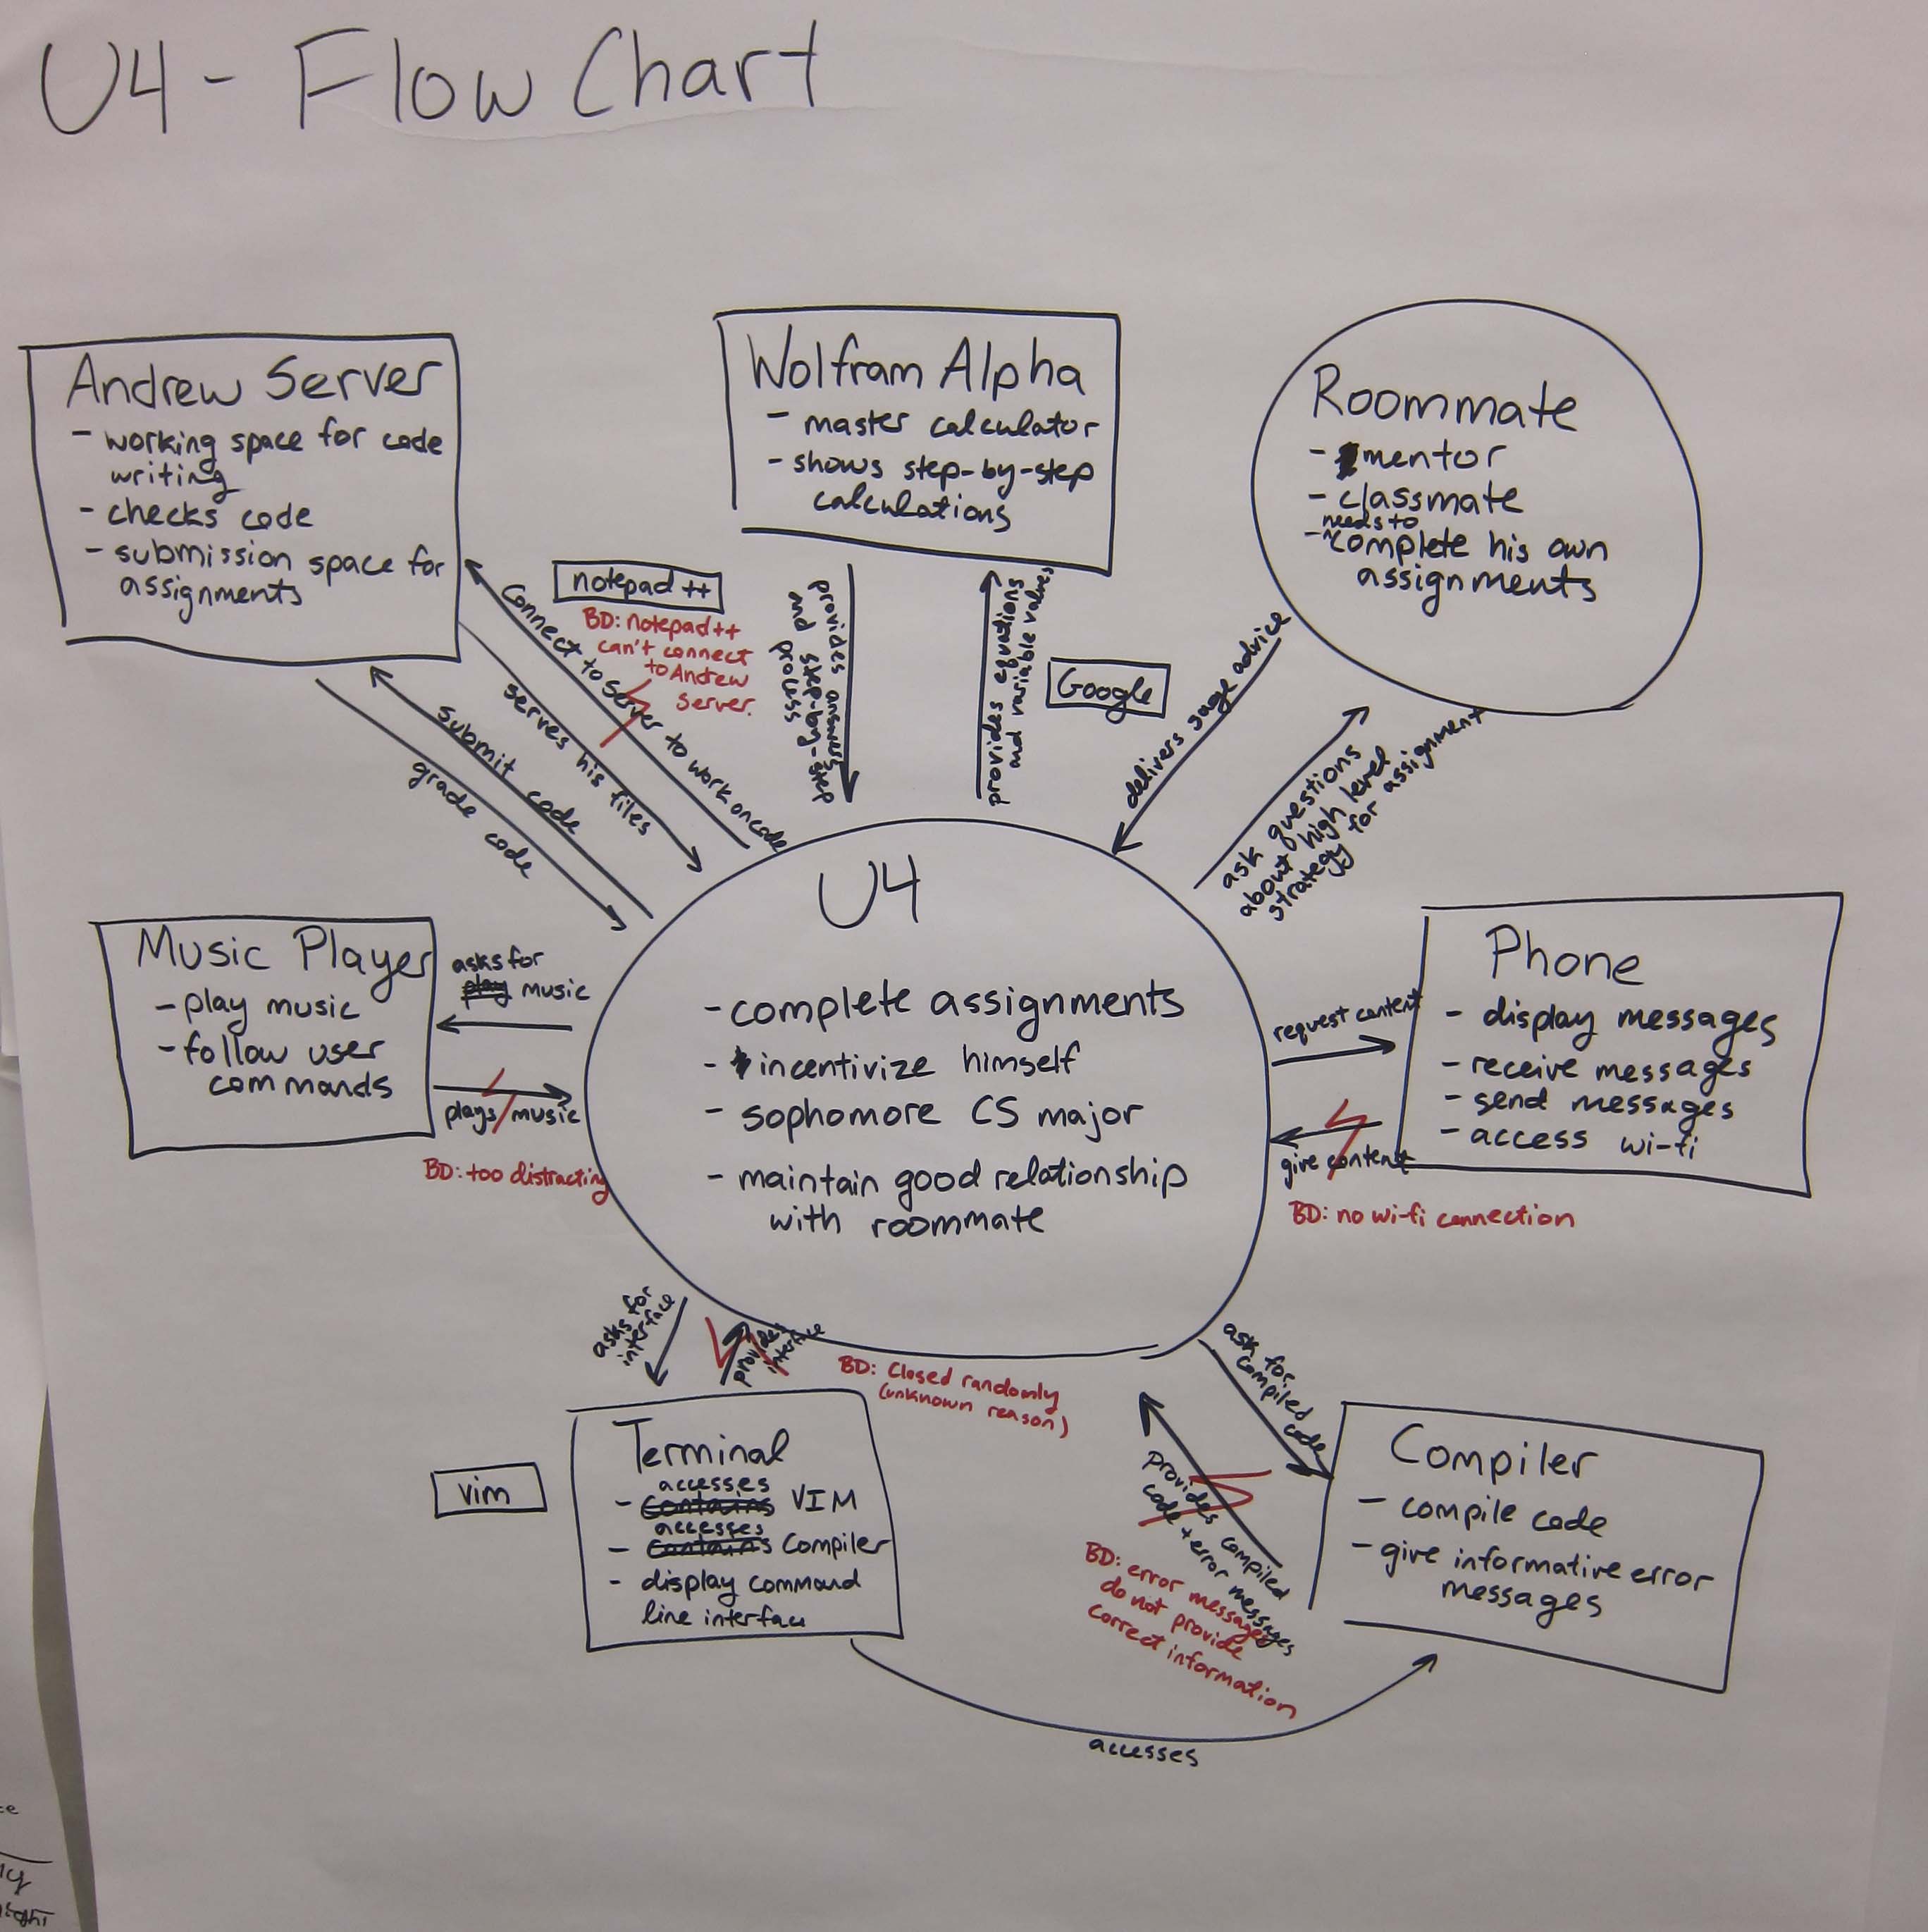 U4 - Flow Chart
Andrew Server
- working space for code
writing
- checks code
- submission space for
assignments
Wolfram Alpha
- master calculator
- shows step-by-step
calculations
Roommate
- mentor
- classmate
needs to
- complete his own
assignments
notepad ++
BD: notepad++
can't connect
to Andrew
Server.
connect to server to work on code
serves his files
submit code
grade code
provides answers
and step-by-step
process
provides equations
and variable values
Google
delivers sage advice
ask questions
about high level
strategy for assignment
U4
- complete assignments
- incentivize himself
- sophomore CS major
- maintain good relationship
with roommate
Music Player
- play music
- follow user
commands
asks for
play music
plays music
BD: too distracting
Phone
- display messages
- receive messages
- send messages
- access wi-fi
request content
give content
BD: no wi-fi connection
asks for
interface
provides
interface
BD: Closed randomly
(unknown reason)
vim
Terminal
accesses
- Contains VIM
accesses
- Contains Compiler
- display command
line interface
ask for
compiled
code
provides compiled
code + error messages
BD: error messages
do not provide
correct information
Compiler
- compile code
- give informative error
messages
accesses